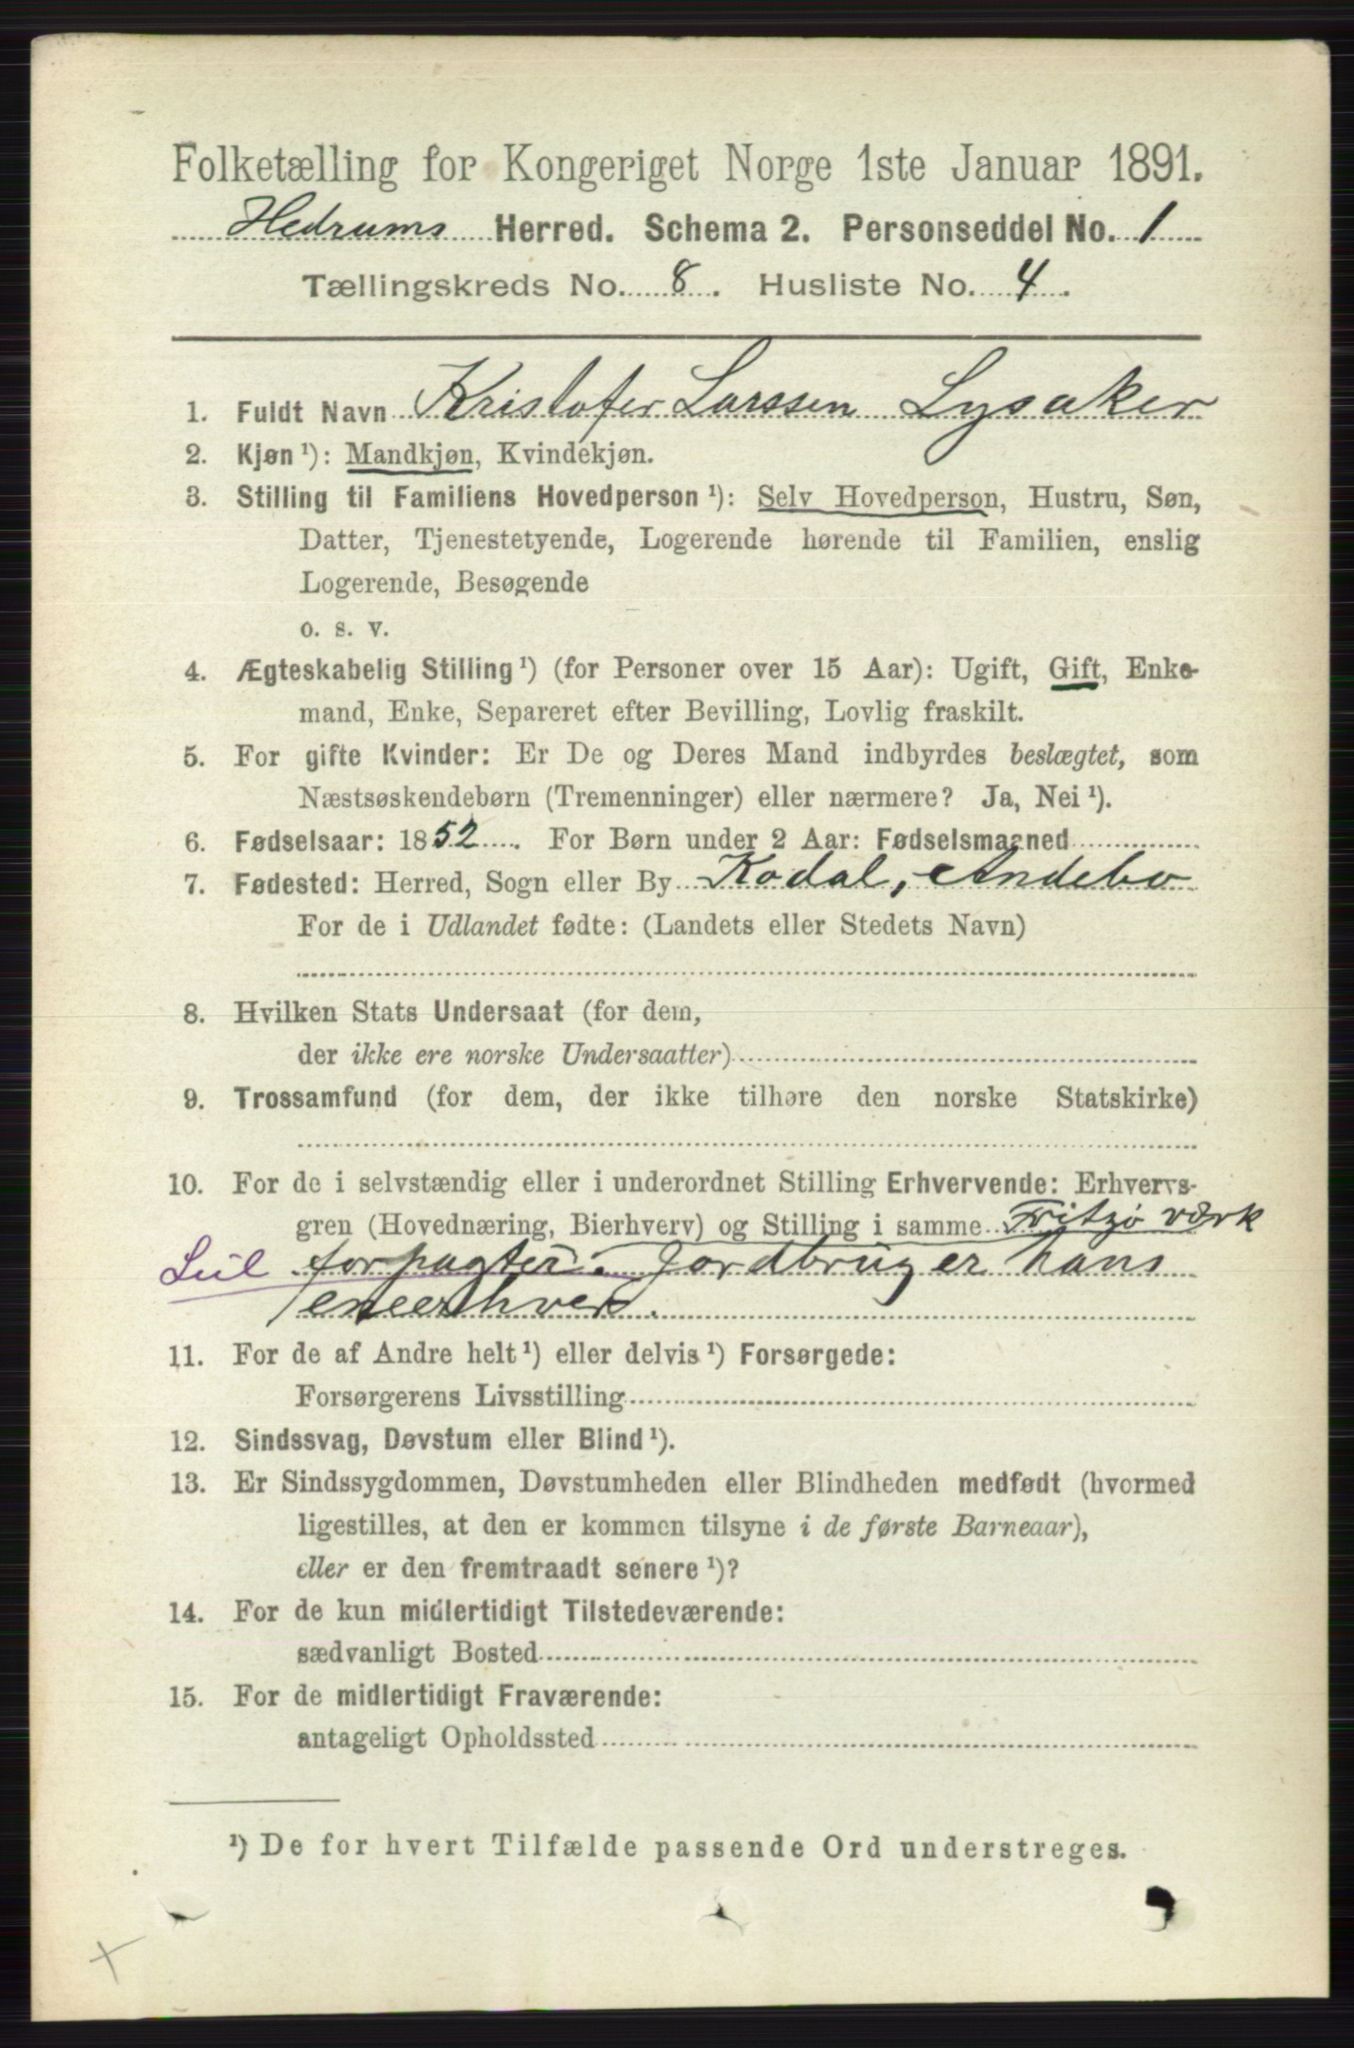 Folketælling for Kongeriget Norge 1ste Januar 1891.
Hedrums Herred. Schema 2. Personseddel No. 1
Tællingskreds No. 8. Husliste No. 4.
1. Fuldt Navn Kristofer Larssen Lysaker
2. Kjøn ¹): Mandkjøn, Kvindekjøn.
3. Stilling til Familiens Hovedperson ¹): Selv Hovedperson, Hustru, Søn,
Datter, Tjenestetyende, Logerende hørende til Familien, enslig
Logerende, Besøgende
o. s. v.
4. Ægteskabelig Stilling ¹) (for Personer over 15 Aar): Ugift, Gift, Enke-
mand, Enke, Separeret efter Bevilling, Lovlig fraskilt.
5. For gifte Kvinder: Er De og Deres Mand indbyrdes beslægtet, som
Næstsøskendebørn (Tremenninger) eller nærmere? Ja, Nei ¹).
6. Fødselsaar: 1852. For Børn under 2 Aar: Fødselsmaaned
7. Fødested: Herred, Sogn eller By Kodal, Andebo
For de i Udlandet fødte: (Landets eller Stedets Navn)
8. Hvilken Stats Undersaat (for dem,
der ikke ere norske Undersaatter)
9. Trossamfund (for dem, der ikke tilhøre den norske Statskirke)
10. For de i selvstændig eller i underordnet Stilling Erhvervende: Erhvervs-
gren (Hovednæring, Bierhverv) og Stilling i samme Fritzø værk
forpagter. Jordbrug er hans
eneerhverv.
11. For de af Andre helt ¹) eller delvis ¹) Forsørgede:
Forsørgerens Livsstilling
12. Sindssvag, Døvstum eller Blind ¹).
13. Er Sindssygdommen, Døvstumheden eller Blindheden medfødt (hvormed
ligestilles, at den er kommen tilsyne i de første Barneaar),
eller er den fremtraadt senere ¹)?
14. For de kun midlertidigt Tilstedeværende:
sædvanligt Bosted
15. For de midlertidigt Fraværende:
antageligt Opholdssted
¹) De for hvert Tilfælde passende Ord understreges.